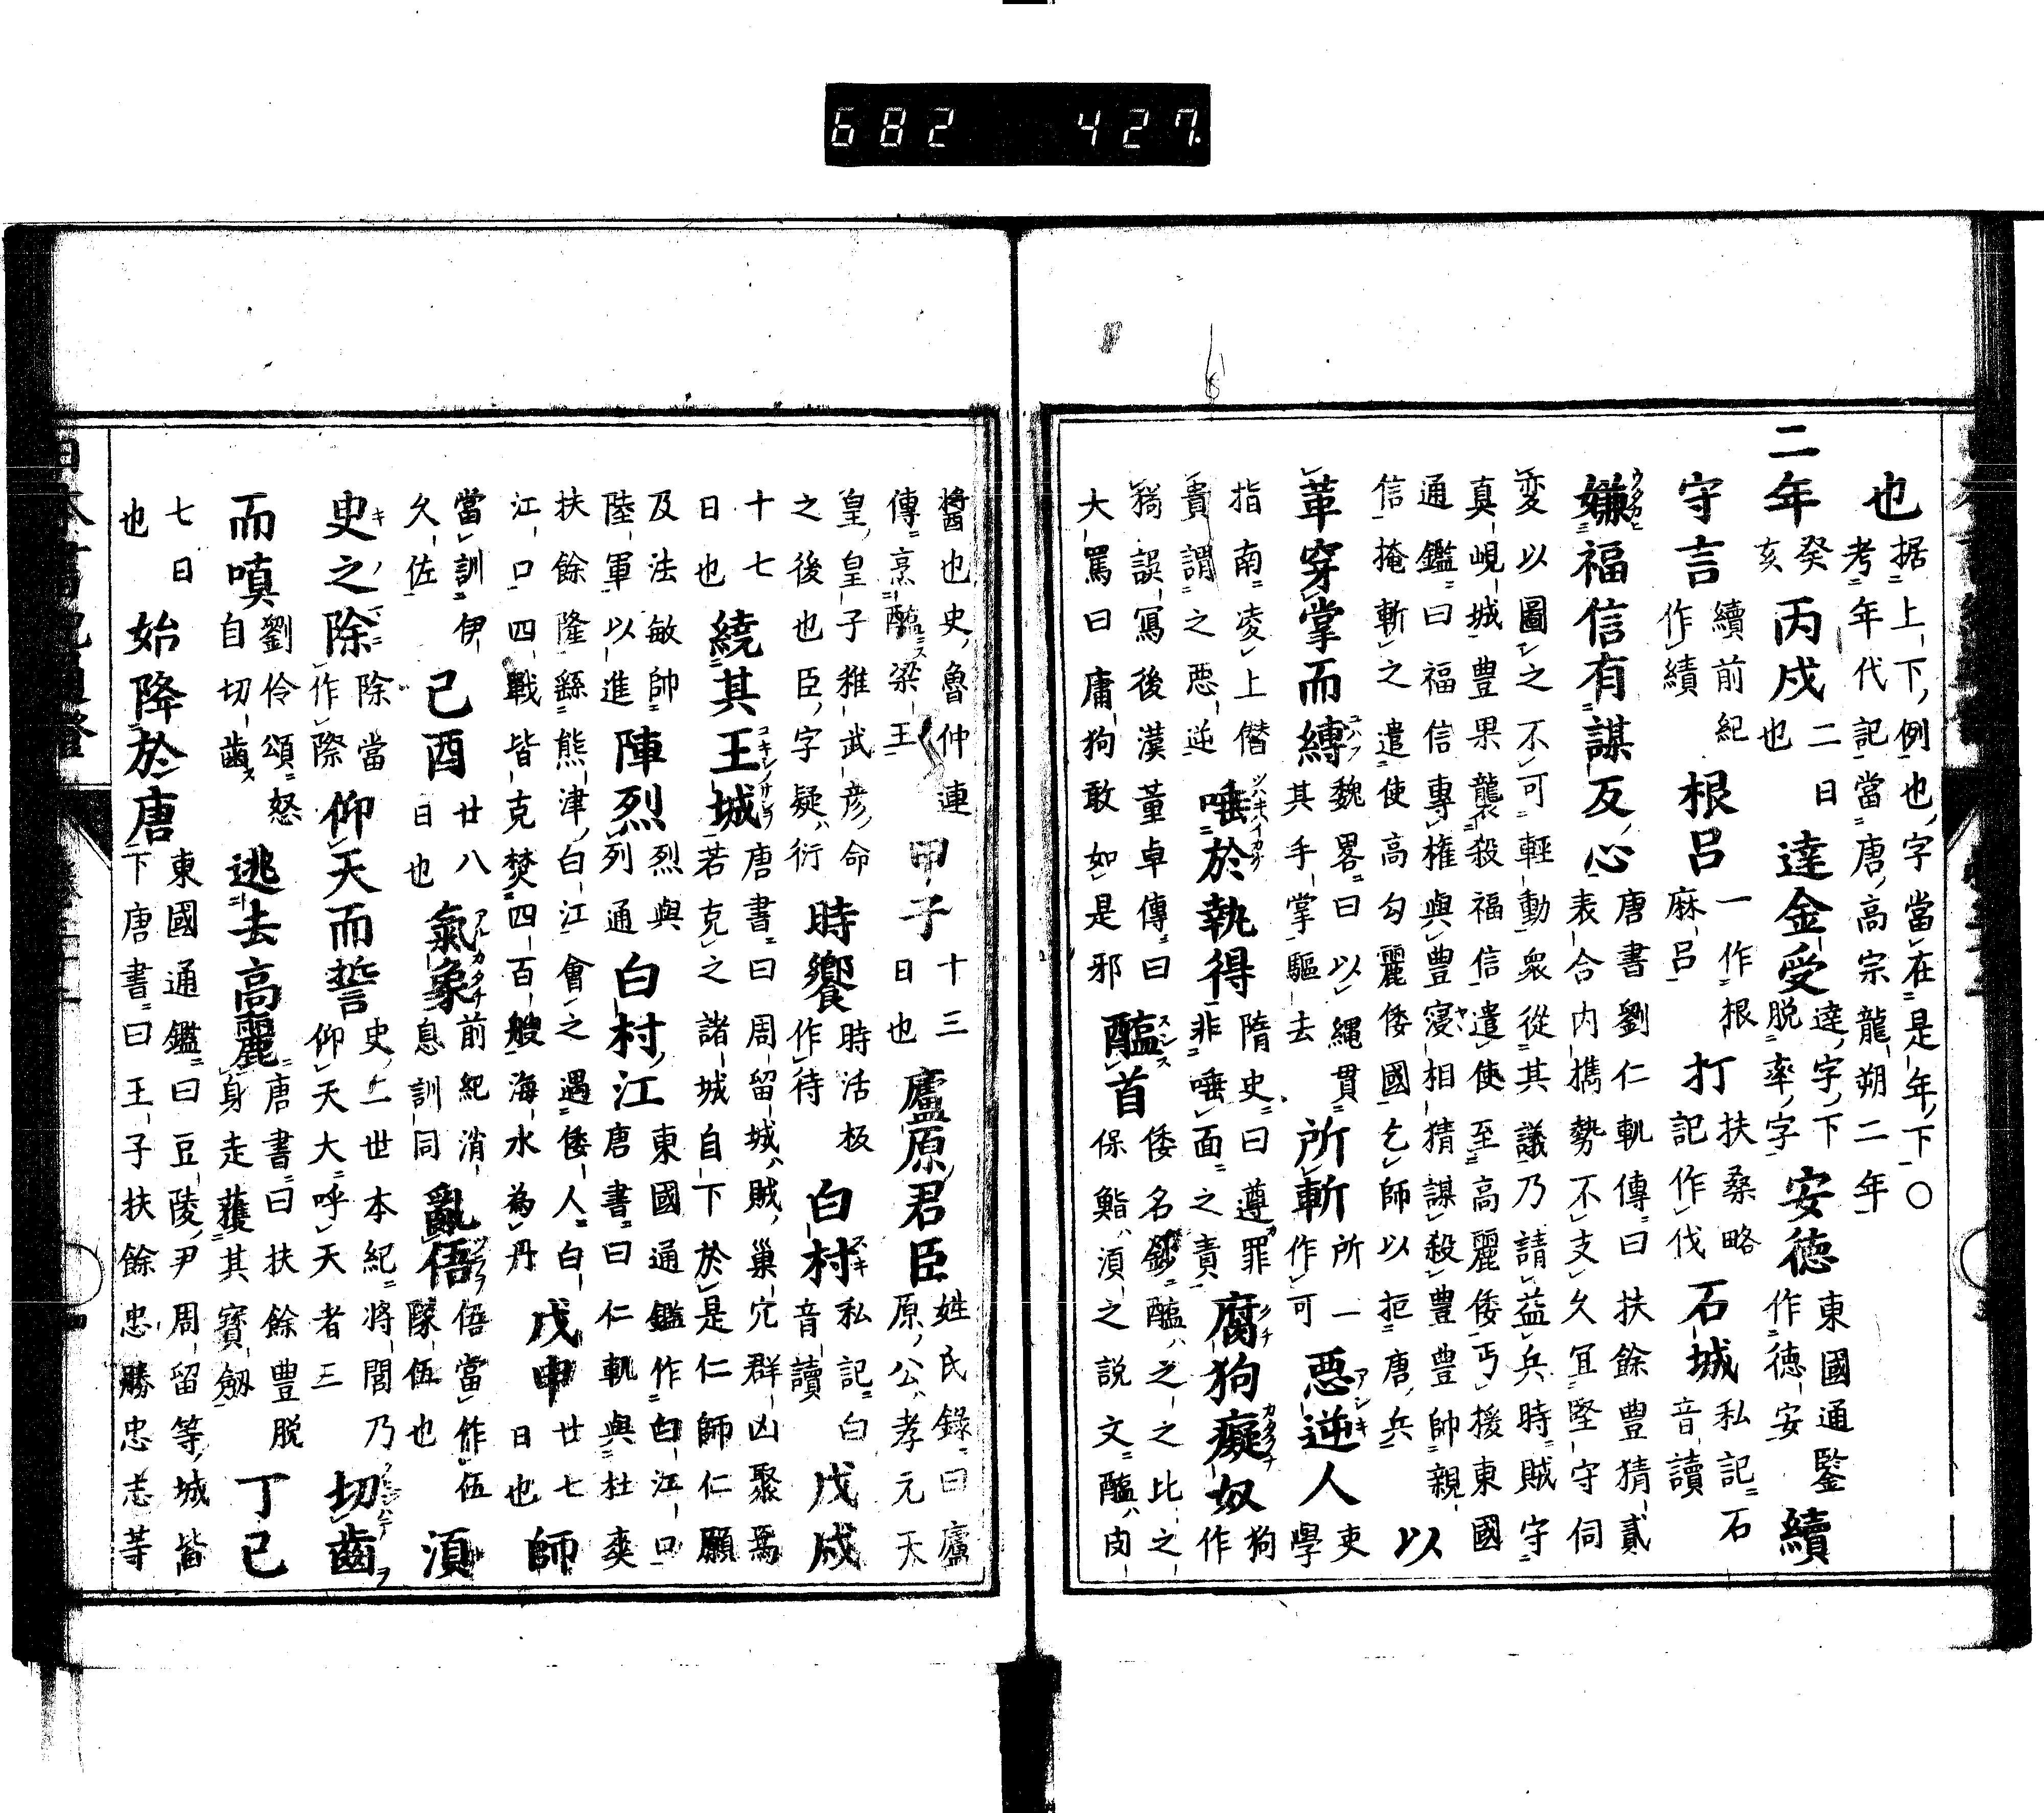 682 427
也据上下例也字當在是年下〇
考年代記當唐高宗龍朔二年
二年癸亥丙戌二日也達金受達字下脱率字安德東國通鑒作德安續
守言續前紀作績根呂一作根麻呂打扶桑略記作伐石城私記石音讀
嫌福信有謀反心唐書劉仁軌傳曰扶餘豊猜貳
表合內携勢不支久冝堅守伺
変以圖之不可輕動衆從其議乃請益兵時賊守
真峴城豊果襲殺福信遣使至高麗倭丐援東國
通鑑曰福信專權與豊寖相猜謀殺豊豊帥親
信掩斬之遣使高勾麗倭國乞師以拒唐兵以
革穿掌而縛魏畧曰以繩貫其手掌驅去所斬所一作可惡逆人吏學
指南凌上僭貴謂之惡逆唾於執得隋史曰遵罪非唾面之責腐狗癡奴狗作
猗誤寫後漢董卓傳曰
大罵曰庸狗敢如是邪醢首倭名鈔醢之之比之
保鮨湏之説文醢肉
醬也史魯仲連
傳烹醢梁王甲子十三日也廬原君臣姓氏錄曰廬原公孝元天
皇皇子稚武彦命
之後也臣字疑衍時饗時活板作待白村私記白音讀戊戌
十七日也繞其王城唐書曰周留城賊巢穴群凶聚焉
若克之諸城自下於是仁師仁願
及法敏帥陸軍以進陣烈烈與列通白村江東國通鑑作白江口
唐書曰仁軌與杜爽
扶餘隆繇熊津白江會之遇倭人白
江口四戰皆克焚四百艘海水為丹戊申廿七日也師
當訓伊久佐己酉廿八日也氣象前紀消息訓同亂伍伍當作伍隊伍也湏
史之除除當作際仰天而誓史上世本紀將閭乃
仰天大呼天者三切齒
而嗔劉伶頌怒自切齒逃去高麗唐書曰扶餘豊脱
身走獲其寶劒丁巳
七日也始降於唐東國通鑑曰豆陵尹周留等城皆
下唐書曰王子扶餘忠勝忠志等